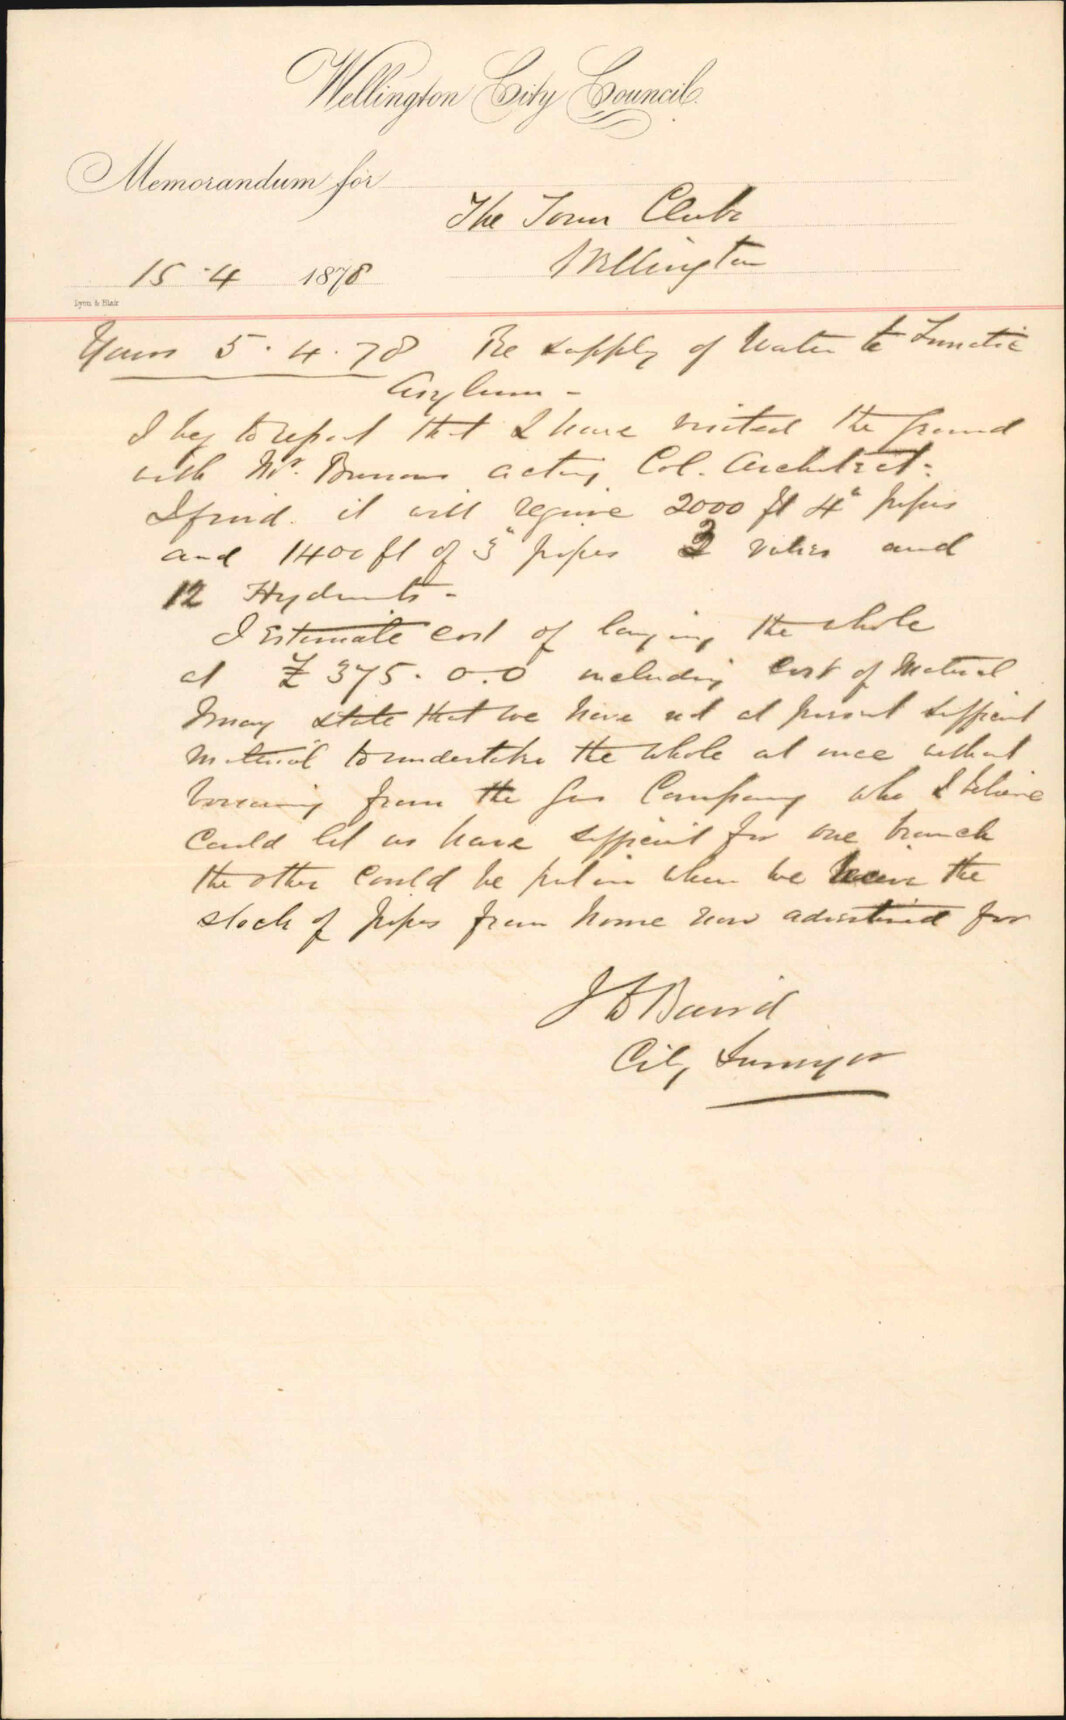 Wellington City Council.
Memorandum for
The Town Clerk
Wellington
15 . 4 1878
Lyon & Blair
Yours 5 . 4 . 78 Re supply of Water to Lunatic
Asylum -
I beg to report that I have visited the ground
with Mr. acting Col. Architect.
I find it will require 2000 ft 4" pipes
and 1400 ft of 3" pipes 3 valves and
12 Hydrants -
I Estimate cost of laying the whole
at £ 375 . 0 . 0 including cost of Material
I may state that we have not at present sufficient
material to undertake the whole at once without
borrowing from the Gas Company who I believe
could let us have sufficient for one branch
the other could be put in when we receive the
stock of pipes from home now advertised for
J D Baird
City Surveyor